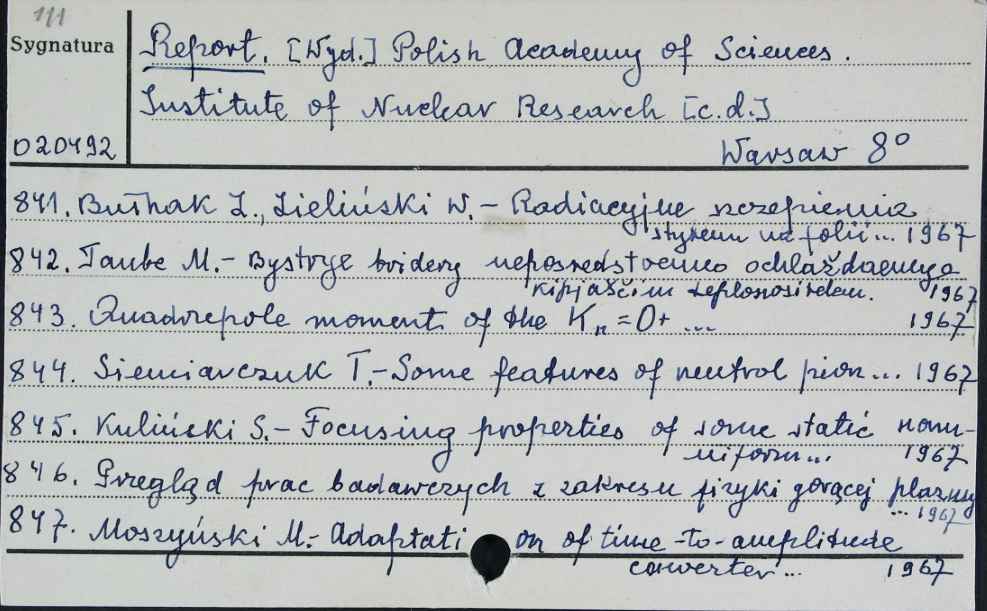 111
Sygnatura
Report. [Wyd.] Polish Academy of Sciences.
Institute of Nuclear Research [c.d.]
020492
Warsaw 8°
841. Buthak Z., Zieliński W. – Radiacyjne szczepienia
styrenu na folii... 1967
842. Taube M. – Bystrye bridery neposredstvenno ochlaždaemye
kipjaščim teplonositelem. 1967
843. Quadrepole moments of the Kπ = 0+ ... 1967
844. Siemiarczuk T. – Some features of neutrol pion... 1967
845. Kuliński S. – Focusing properties of some static nonu-
niform... 1967
846. Przegląd prac badawczych z zakresu fizyki gorącej plazmy
... 1967
847. Moszyński M. – Adaptation of time-to-amplitude
converter... 1967